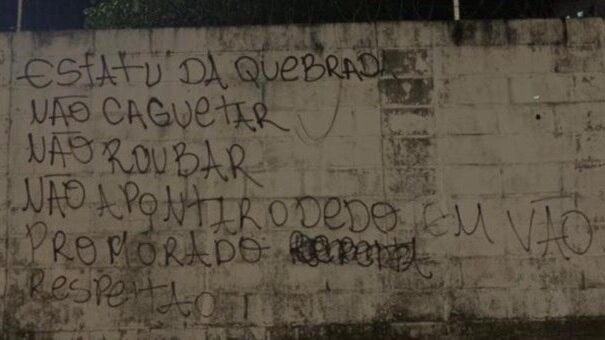 ESTATU DA QUEBRADA
NÃO CAGUETAR
NÃO ROUBAR
NÃO APONTIRODEDO EM VÃO
PROMORADO
RESPEITAO